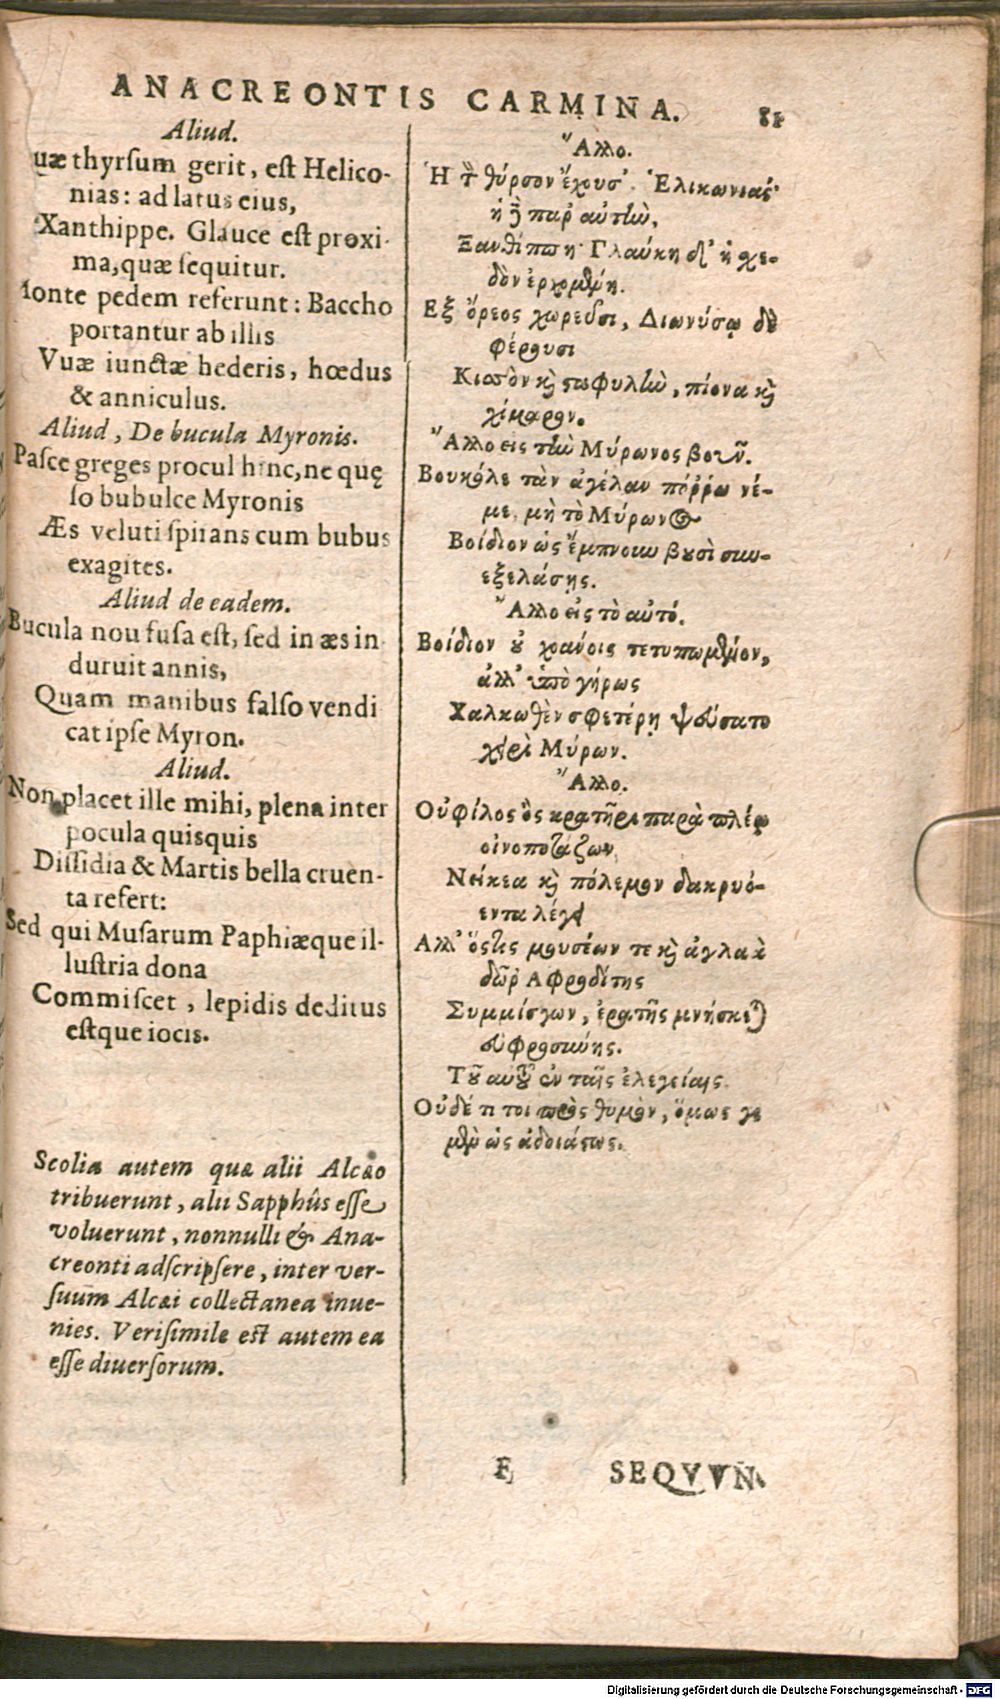 ANACREONTIS CARMINA. 81
Aliud.
uæ thyrsum gerit, est Helico-
nias: ad latus eius,
Xanthippe. Glauce est proxi-
ma, quæ sequitur.
onte pedem referunt: Baccho
portantur ab illis
Vuæ iunctæ hederis, hœdus
& anniculus.
Aliud, De bucula Myronis.
Pasce greges procul hinc, ne quę
so bubulce Myronis
Æs veluti spirans cum bubus
exagites.
Aliud de eadem.
Bucula non fusa est, sed in æs in
duruit annis,
Quam manibus falso vendi
cat ipse Myron.
Aliud.
Non placet ille mihi, plena inter
pocula quisquis
Dissidia & Martis bella cruen-
ta refert:
Sed qui Musarum Paphiæque il-
lustria dona
Commiscet, lepidis deditus
estque iocis.
Scolia autem quæ alii Alcæo
tribuerunt, alii Sapphûs esse
voluerunt, nonnulli & Ana-
creonti adscripsere, inter ver-
suum Alcæi collectanea inue-
nies. Verisimile est autem ea
esse diuersorum.
Ἄλλο.
Ἡ τὸν θύρσον ἔχουσ' Ἑλικωνιὰς·
ἡ δὲ παρ' αὐτὴν,
Ξανθίππη· Γλαύκη δ' ἡ σχε-
δὸν ἐρχομένη.
Εξ ὄρεος χωρεῦσι, Διωνύσῳ δὲ
φέρουσι
Κισσὸν καὶ σταφυλὴν, πίονα καὶ
χίμαρον.
Ἄλλο εἰς τὴν Μύρωνος βοῦν.
Βουκόλε τὰν ἀγέλαν πόῤῥω νέ-
με, μὴ τὸ Μύρωνος
Βοίδιον ὡς ἔμπνουν βουσὶ συν-
εξελάσῃς.
Ἄλλο εἰς τὸ αὐτό.
Βοίδιον οὐ χοάνοις τετυπωμένον,
ἀλλ' ὑπὸ γήρως
Χαλκωθὲν σφετέρῃ ψεύσατο
χειρὶ Μύρων.
Ἄλλο.
Οὐ φίλος ὃς κρατῆρι παρὰ πλέῳ
οἰνοποτάζων
Νείκεα καὶ πόλεμον δακρυό-
εντα λέγει
Αλλ' ὅστις μουσέων τε καὶ ἀγλαὰ
δῶρ' Αφροδίτης
Συμμίσγων, ἐρατῆς μνήσκεται
εὐφροσύνης.
Τοῦ αὐτοῦ ἐν ταῖς ἐλεγείαις
Οὐδέ τι τοι πρὸς θυμὸν, ὅμως γε
μὲν ὡς ἀδοιάστως.
F SEQVVN-
Digitalisierung gefördert durch die Deutsche Forschungsgemeinschaft - DFG